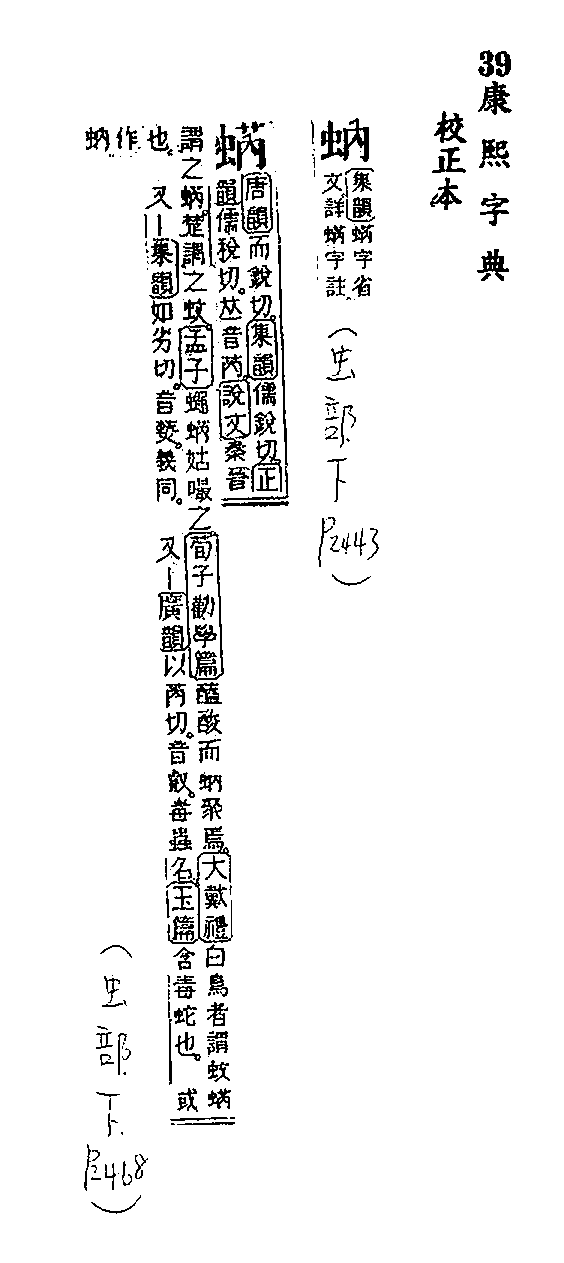 39康熙字典
校正本
蚋
集韻蜹字省
文詳蜹字註
(虫部下 P2443)
蜹
唐韻而銳切。集韻儒銳切。正
韻儒稅切。𠀤音芮。說文秦晉
謂之蜹。楚謂之蚊。孟子蠅蜹姑嘬之。荀子勸學篇醯酸而蚋聚焉。大戴禮白鳥者謂蚊蜹
也。又|集韻如劣切。音爇。義同。又|廣韻以芮切。音叡。毒蟲名。玉篇含毒蛇也。或
作
蚋
(虫部下 P2468)